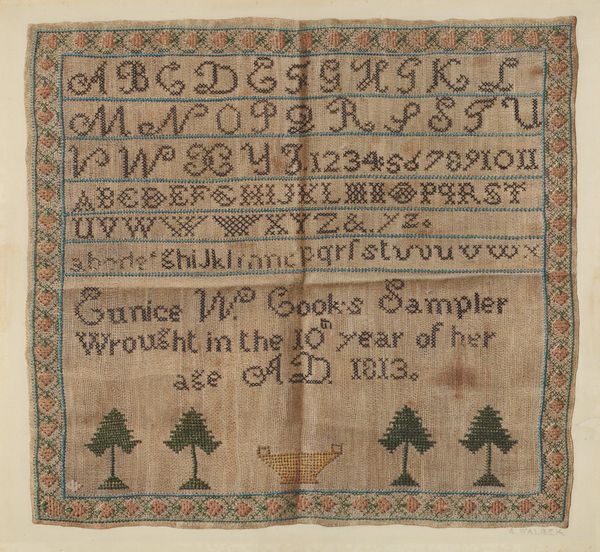 A B C D E F G H G K L
M N O P Q R S S T U
V W X Y Z 1 2 3 4 5 6 7 8 9 10 11
A B C D E F G H I J K L M N O P Q R S T
U V W X Y Z &
a b c d e f g h i j k l m n o p q r ſ s t u v u v w x
Eunice W Cooks Sampler
Wrought in the 10th year of her
age AD 1813.